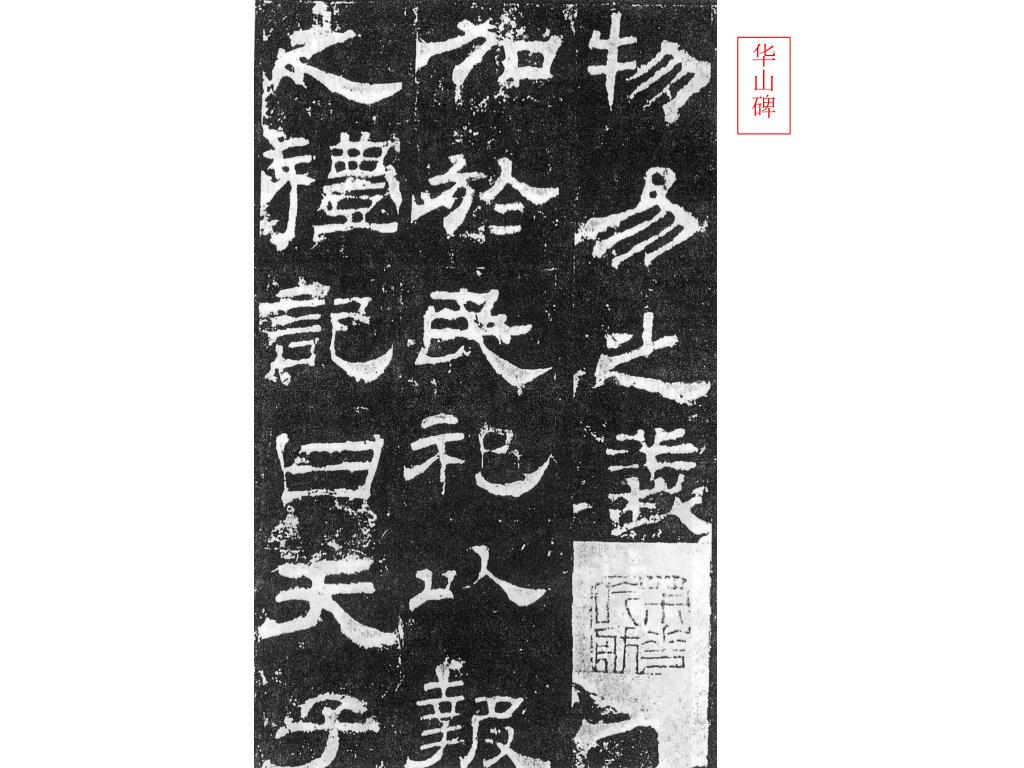 华山碑
物易之義
加於民祀以報
之禮記曰天子